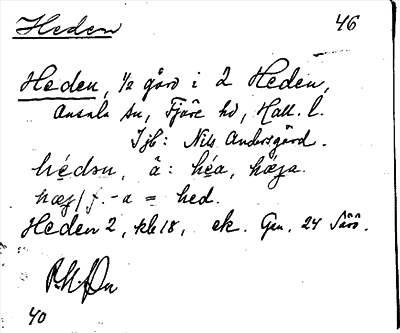 Heden 46
Heden, 1/2 gård i 2 Heden,
Onsala sn, Fjäre hd, Hall. l.
Ijb: Nils Andersgård.
hédən, å: héa, hǽja.
hæj f. -a = hed.
Heden 2, kb 18, ek. Gen. 24 Särö.
40